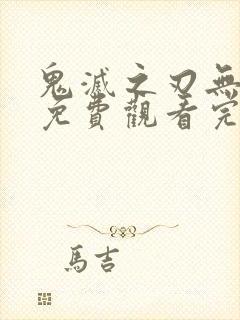 鬼滅之刃無
免費觀看完
馬吉